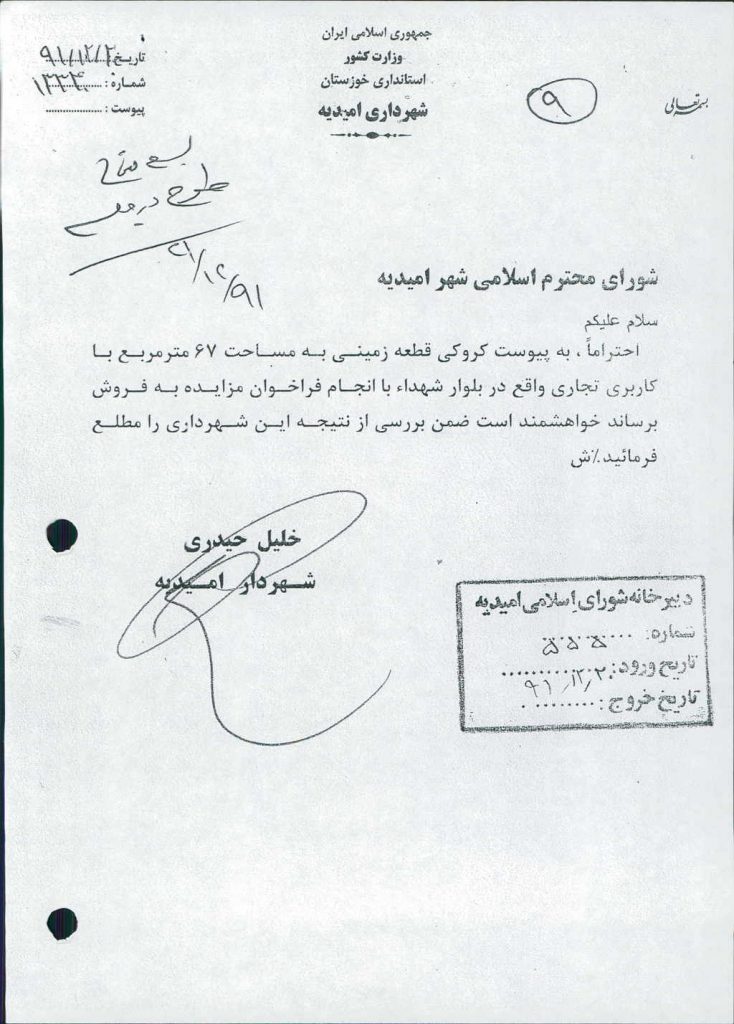 بسمه تعالی
جمهوری اسلامی ایران
وزارت کشور
استانداری خوزستان
شهرداری امیدیه
تاریخ: ۹۱/۱۲/۲
شماره:
پیوست:
۹
طرح در
۲۱/۱۲/۹۱
شورای محترم اسلامی شهر امیدیه
سلام علیکم
احتراماً، به پیوست کروکی قطعه زمینی به مساحت ۶۷ مترمربع با
کاربری تجاری واقع در بلوار شهداء با انجام فراخوان مزایده به فروش
برساند خواهشمند است ضمن بررسی از نتیجه این شهرداری را مطلع
فرمائید٪ش
خلیل حیدری
شهردار امیدیه
دبیرخانه شورای اسلامی امیدیه
شماره: ۵۵۵
تاریخ ورود: ۹۱/۱۲/۲۰
تاریخ خروج: